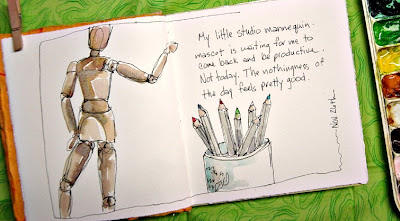 My little studio mannequin-
mascot is waiting for me to
come back and be productive.
Not today. The nothingness of
the day feels pretty good.
Nov 26th